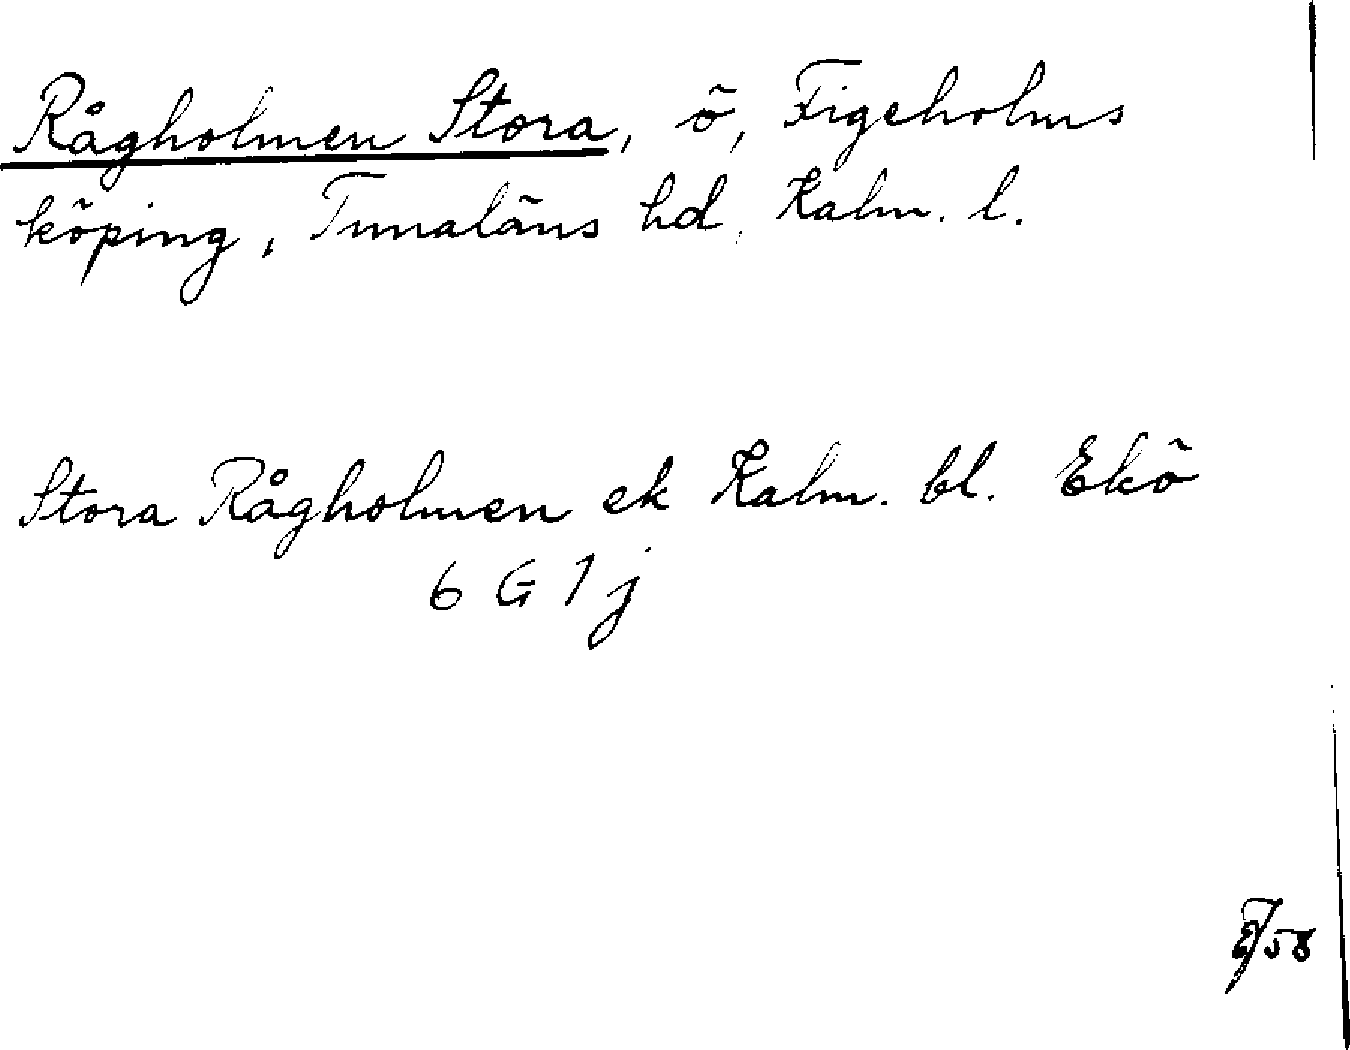 Rågholmen Stora, ö, Figeholms
köping, Tunaläns hd, Kalm. l.
Stora Rågholmen ek Kalm. bl. Ekö
6 G 1 j
/58